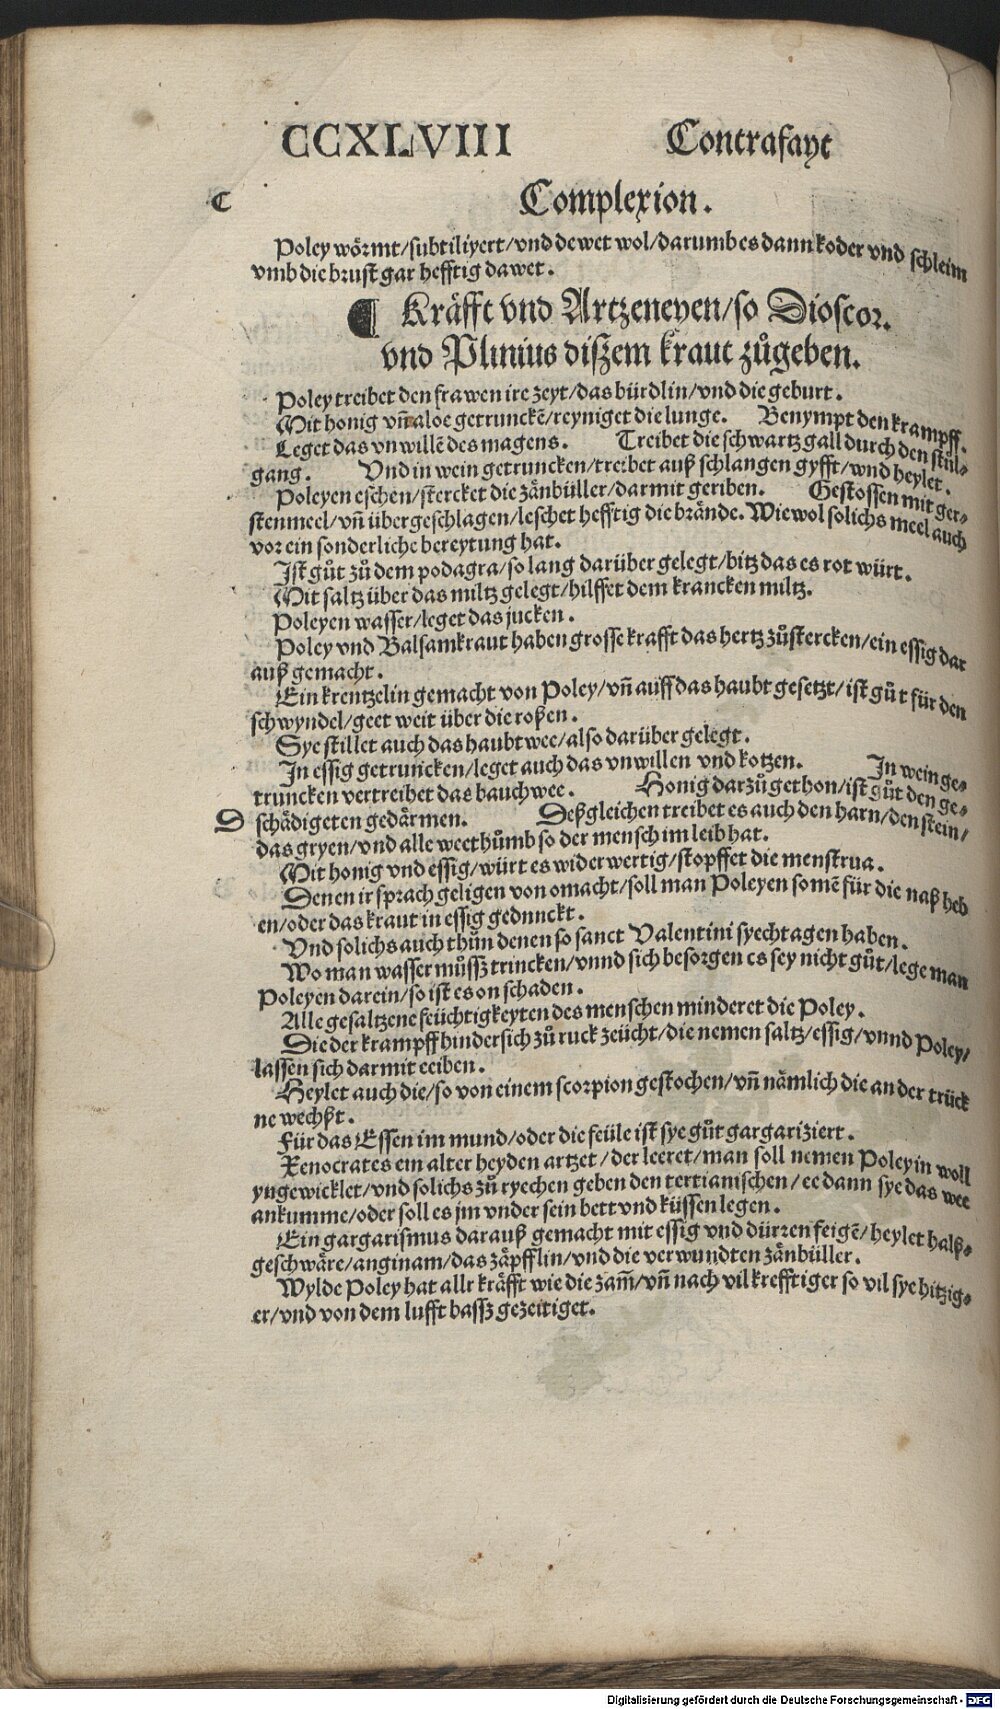 CCXLVIII Contrafayt
C Complexion.
Poley wörmt/subtiliyert/vnd dewet wol/darumb es dann koder vnd schleim
vmb die brust gar hefftig dawet.
¶ Kräfft vnd Artzeneyen/so Dioscor.
vnd Plinius diszem kraut zůgeben.
Poley treibet den frawen ire zeyt/das bürdlin/vnd die geburt.
Mit honig vn̄ aloe getrunckē/reyniget die lunge. Benympt den krampff.
Leget das vnwillē des magens. Treibet die schwartz gall durch den stůl⸗
gang. Vnd in wein getruncken/treibet auß schlangen gyfft/vnd heylet.
Poleyen eschen/stercket die zänbüller/darmit geriben. Gestossen mit ger⸗
stenmeel/vn̄ übergeschlagen/leschet hefftig die brände. Wiewol solichs meel auch
vor ein sonderliche bereytung hat.
Ist gůt zů dem podagra/so lang darüber gelegt/bitz das es rot würt.
Mit saltz über das miltz gelegt/hilffet dem krancken miltz.
Poleyen wasser/leget das jucken.
Poley vnd Balsamkraut haben grosse krafft das hertz zůstercken/ein essig dar
auß gemacht.
Ein krentzelin gemacht von Poley/vn̄ auff das haubt gesetzt/ist gůt für den
schwyndel/geet weit über die roßen.
Sye stillet auch das haubtwee/also darüber gelegt.
In essig getruncken/leget auch das vnwillen vnd kotzen. In wein ge⸗
truncken vertreibet das bauchwee. Honig darzů gethon/ist gůt den ge⸗
D schädigeten gedärmen. Deßgleichen treibet es auch den harn/den stein/
das gryen/vnd alle weethůmb so der mensch im leib hat.
Mit honig vnd essig/würt es widerwertig/stopffet die menstrua.
Denen ir sprach geligen von omacht/soll man Poleyen somē für die naß heb
en/oder das kraut in essig gednnckt.
Vnd solichs auch thůn denen so sanct Valentini syechtagen haben.
Wo man wasser můsß trincken/vnnd sich besorgen es sey nicht gůt/lege man
Poleyen darein/so ist es on schaden.
Alle gesaltzene feüchtigkeyten des menschen minderet die Poley.
Die der krampff hindersich zů ruck zeücht/die nemen saltz/essig/vnnd Poley/
lassen sich darmit reiben.
Heylet auch die/so von einem scorpion gestochen/vn̄ nämlich die an der trück
ne wechßt.
Für das Essen im mund/oder die feüle ist sye gůt gargariziert.
Xenocrates ein alter heyden artzet/der leeret/man soll nemen Poley in woll
yngewicklet/vnd solichs zů ryechen geben den tertianischen/ee dann sye das wee
ankumme/oder soll es jm vnder sein bett vnd küssen legen.
Ein gargarismus darauß gemacht mit essig vnd dürren feigē/heylet halß⸗
geschwäre/anginam/das zäpfflin/vnd die verwundten zänbüller.
Wylde Poley hat allr kräfft wie die zam̄/vn̄ nach vil krefftiger so vil sye hitzig⸗
er/vnd von dem lufft basß gezeitiget.
Digitalisierung gefördert durch die Deutsche Forschungsgemeinschaft - DFG